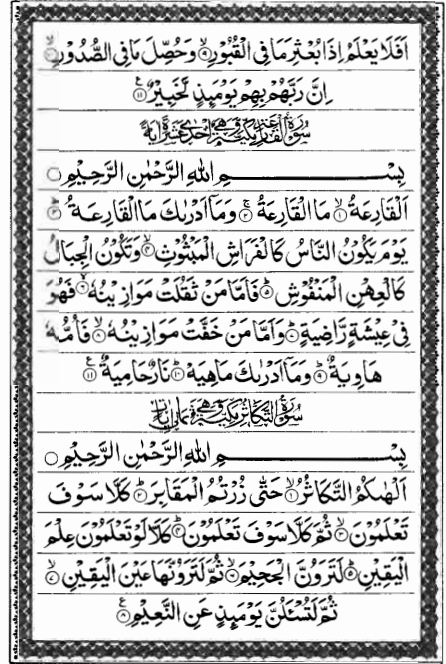 اَفَلَا يَعْلَمُ اِذَا بُعْثِرَ مَا فِي الْقُبُوْرِ ۙ﴿۹﴾ وَحُصِّلَ مَا فِي الصُّدُوْرِ ۙ﴿۱۰﴾
اِنَّ رَبَّهُمْ بِهِمْ يَوْمَىِٕذٍ لَّخَبِيْرٌ ﴿۱۱﴾ ع
سُوْرَةُ الْقَارِعَةِ مَكِّيَّةٌ وَّهِيَ اِحْدٰى عَشْرَةَ اٰيَةً
بِسْمِ اللّٰهِ الرَّحْمٰنِ الرَّحِيْمِ
اَلْقَارِعَةُ ۙ﴿۱﴾ مَا الْقَارِعَةُ ۚ﴿۲﴾ وَمَاۤ اَدْرٰىكَ مَا الْقَارِعَةُ ؕ﴿۳﴾
يَوْمَ يَكُوْنُ النَّاسُ كَالْفَرَاشِ الْمَبْثُوْثِ ۙ﴿۴﴾ وَتَكُوْنُ الْجِبَالُ
كَالْعِهْنِ الْمَنْفُوْشِ ؕ﴿۵﴾ فَاَمَّا مَنْ ثَقُلَتْ مَوَازِيْنُهٗ ۙ﴿۶﴾ فَهُوَ
فِيْ عِيْشَةٍ رَّاضِيَةٍ ؕ﴿۷﴾ وَاَمَّا مَنْ خَفَّتْ مَوَازِيْنُهٗ ۙ﴿۸﴾ فَاُمُّهٗ
هَاوِيَةٌ ؕ﴿۹﴾ وَمَاۤ اَدْرٰىكَ مَا هِيَهْ ؕ﴿۱۰﴾ نَارٌ حَامِيَةٌ ﴿۱۱﴾ ع
سُوْرَةُ التَّكَاثُرِ مَكِّيَّةٌ وَّهِيَ ثَمَانِيْ اٰيَاتٍ
بِسْمِ اللّٰهِ الرَّحْمٰنِ الرَّحِيْمِ
اَلْهٰىكُمُ التَّكَاثُرُ ۙ﴿۱﴾ حَتّٰى زُرْتُمُ الْمَقَابِرَ ؕ﴿۲﴾ كَلَّا سَوْفَ
تَعْلَمُوْنَ ۙ﴿۳﴾ ثُمَّ كَلَّا سَوْفَ تَعْلَمُوْنَ ؕ﴿۴﴾ كَلَّا لَوْ تَعْلَمُوْنَ عِلْمَ
الْيَقِيْنِ ؕ﴿۵﴾ لَتَرَوُنَّ الْجَحِيْمَ ۙ﴿۶﴾ ثُمَّ لَتَرَوُنَّهَا عَيْنَ الْيَقِيْنِ ۙ﴿۷﴾
ثُمَّ لَتُسْـَٔلُنَّ يَوْمَىِٕذٍ عَنِ النَّعِيْمِ ﴿۸﴾ ع